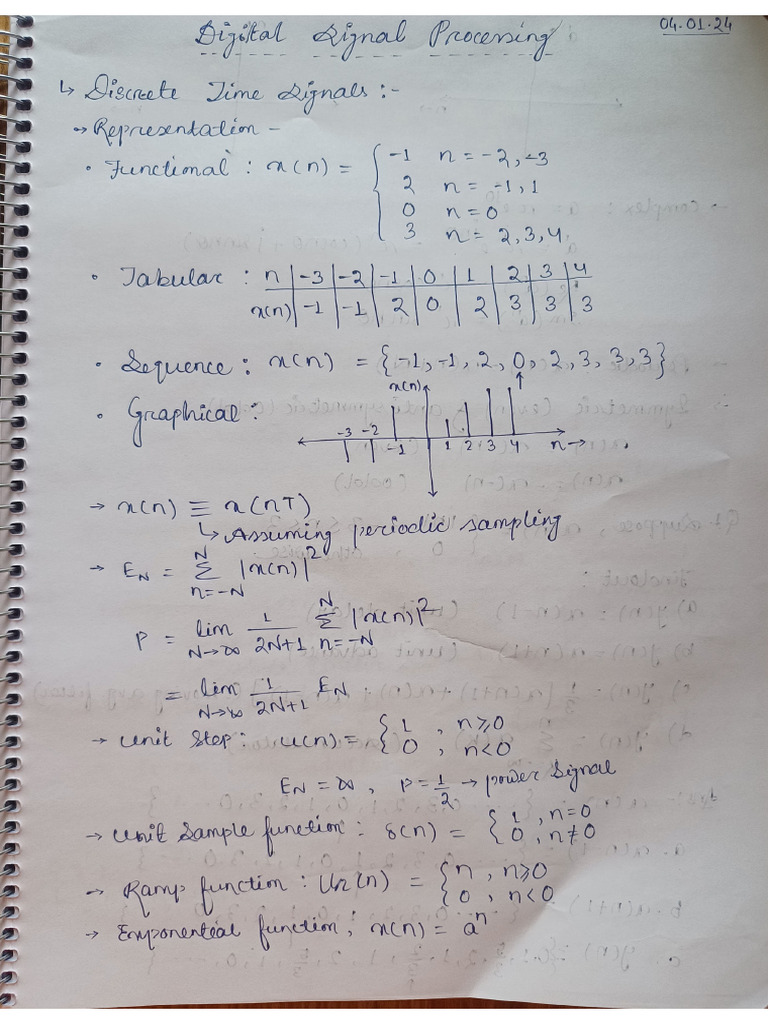 Digital Signal Processing 04.01.24
↳ Discrete Time Signals :-
→ Representation -
• Functional : x(n) = { -1 n = -2, -3
2 n = -1, 1
0 n = 0
3 n = 2, 3, 4
• Tabular : n | -3 | -2 | -1 | 0 | 1 | 2 | 3 | 4
x(n) | -1 | -1 | 2 | 0 | 2 | 3 | 3 | 3
• Sequence : x(n) = {-1, -1, 2, 0, 2, 3, 3, 3}
↑
x(n)
• Graphical :
-3 -2 -1 1 2 3 4 n→
→ x(n) ≡ x(nT)
↳ Assuming periodic sampling
→ E_N = Σ_{n=-N}^{N} |x(n)|²
P = lim_{N→∞} 1/(2N+1) Σ_{n=-N}^{N} |x(n)|²
= lim_{N→∞} 1/(2N+1) E_N
→ Unit Step : u(n) = { 1 , n≥0
0 , n<0
E_N = ∞ , P = 1/2 → power signal
→ Unit Sample function : δ(n) = { 1 , n=0
0 , n≠0
→ Ramp function : Ur(n) = { n , n≥0
0 , n<0
→ Exponential function ; x(n) = aⁿ